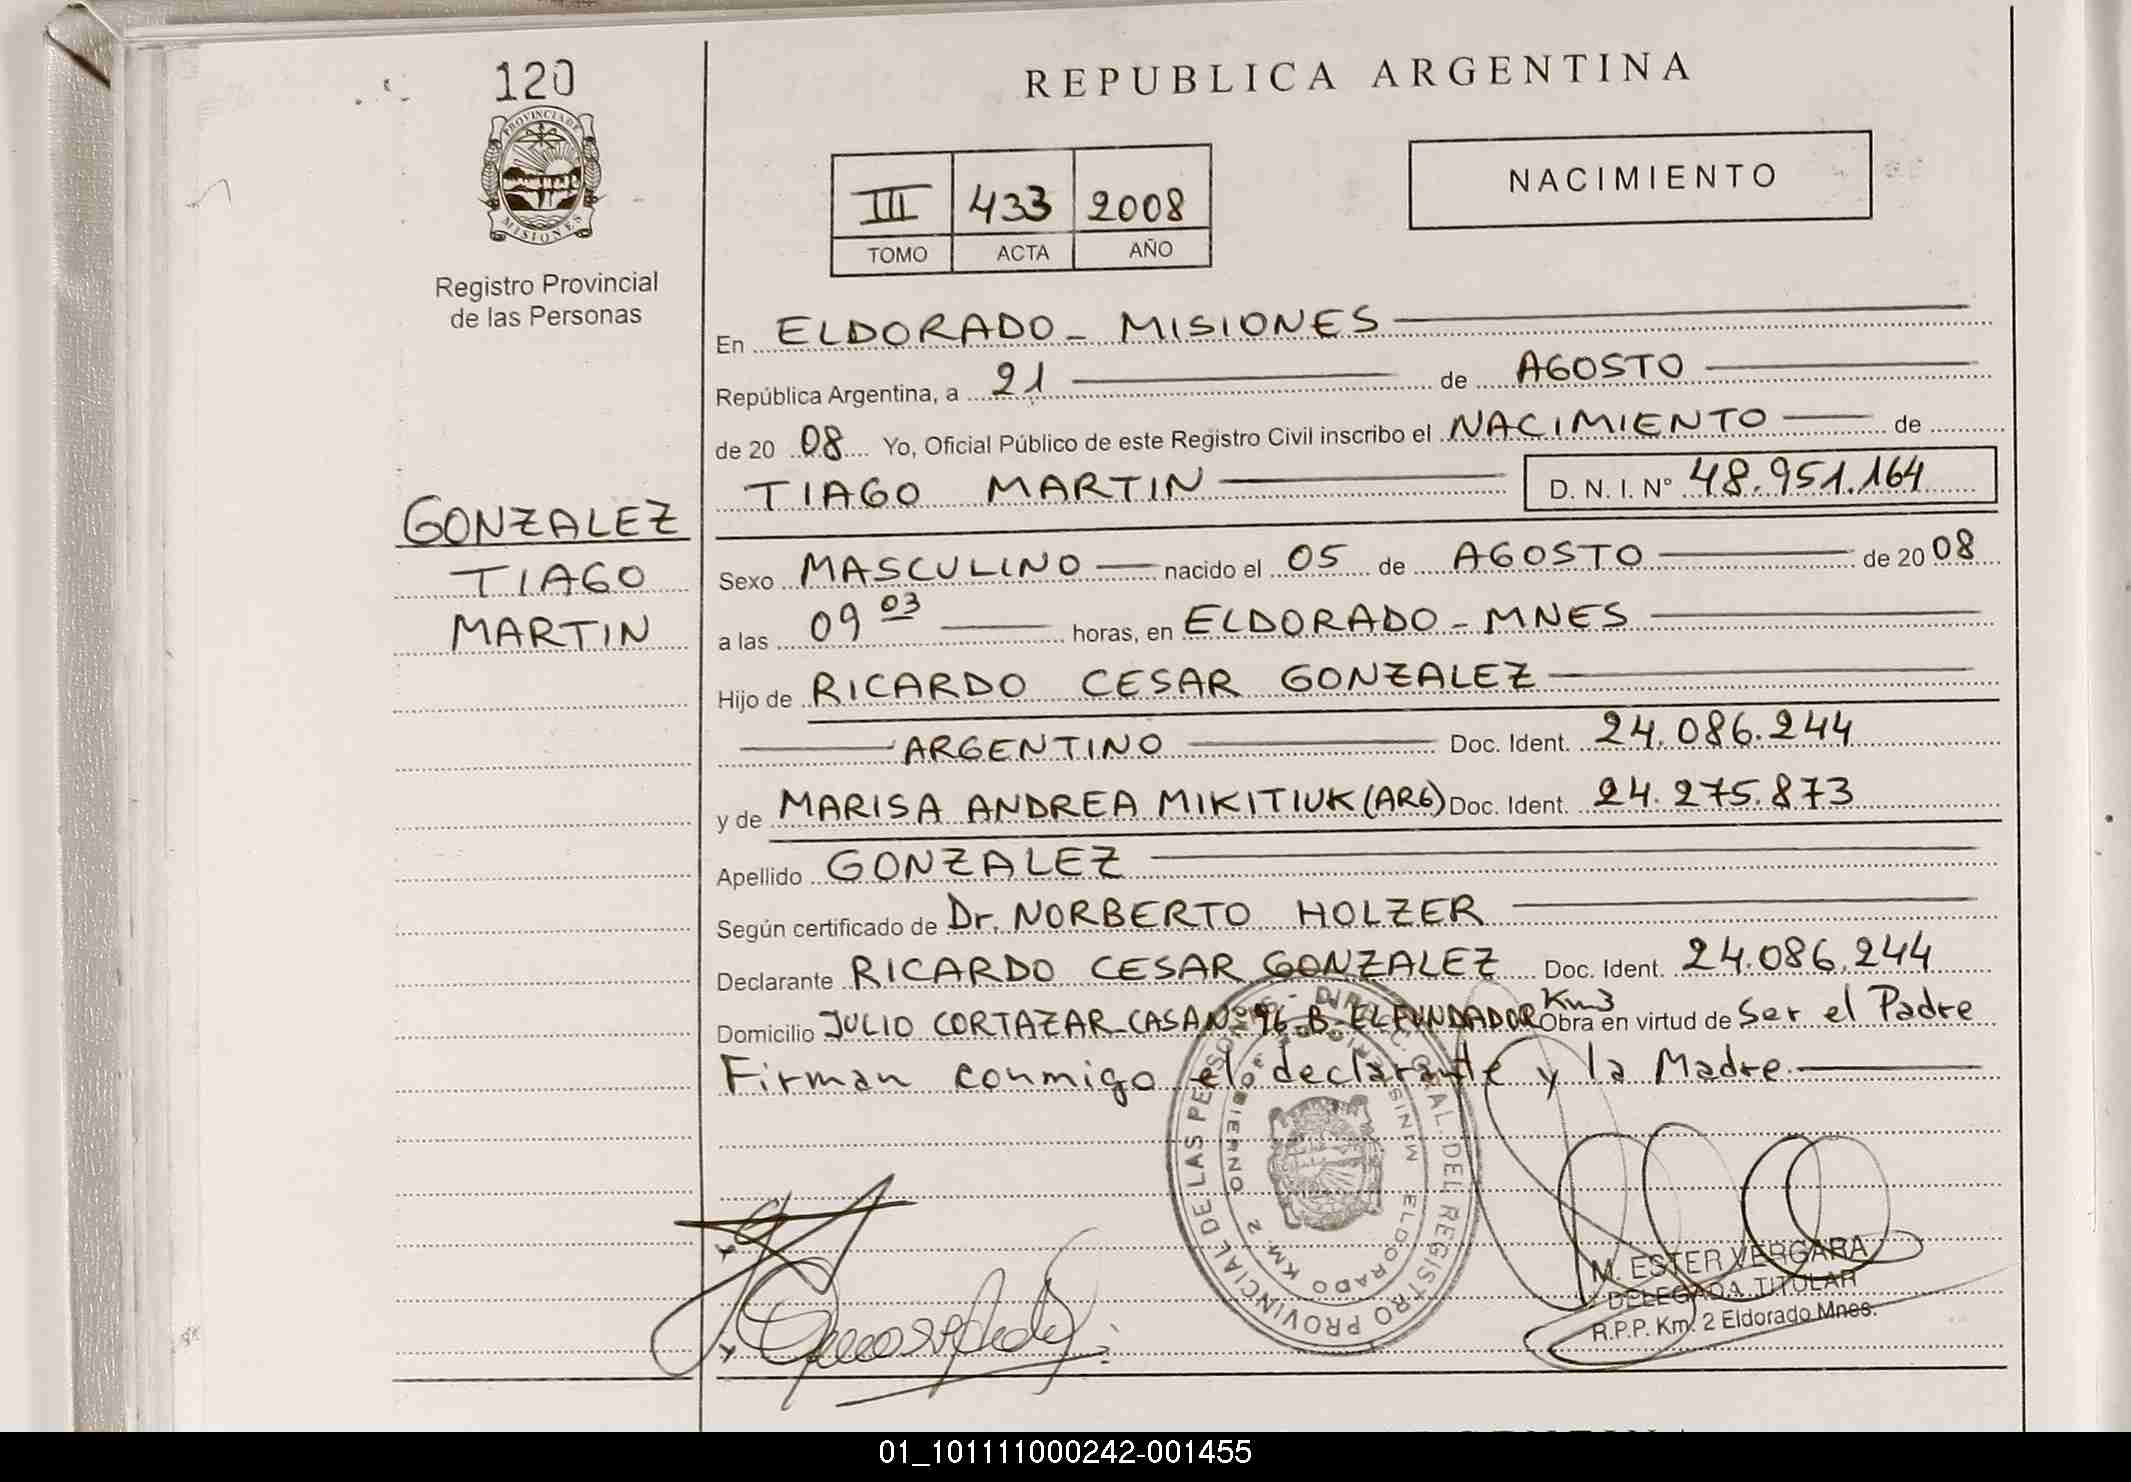 120
PROVINCIA DE
MISIONES
Registro Provincial
de las Personas
GONZALEZ
TIAGO
MARTIN
REPUBLICA ARGENTINA
III 433 2008
TOMO ACTA AÑO
NACIMIENTO
En ELDORADO - MISIONES
República Argentina, a 21 de AGOSTO
de 20 08 Yo, Oficial Público de este Registro Civil inscribo el NACIMIENTO de
TIAGO MARTIN D. N. I. Nº 48.951.164
Sexo MASCULINO nacido el 05 de AGOSTO de 20 08
a las 09 03 horas, en ELDORADO - MNES
Hijo de RICARDO CESAR GONZALEZ
ARGENTINO Doc. Ident. 24.086.244
y de MARISA ANDREA MIKITIUK (ARG) Doc. Ident. 24.275.873
Apellido GONZALEZ
Según certificado de Dr. NORBERTO HOLZER
Declarante RICARDO CESAR GONZALEZ Doc. Ident. 24.086.244
Domicilio JULIO CORTAZAR - CASA Nº 96 - B - EL FUNDADOR Km3 Obra en virtud de Ser el Padre
Firman conmigo el declarante y la Madre.
REGISTRO PROVINCIAL DE LAS PERSONAS - DIRECC. GRAL. DEL
ELDORADO KM 2
M. ESTER VERGARA
DELEGADA TITULAR
R.P.P. Km. 2 Eldorado Mnes.
01_101111000242-001455